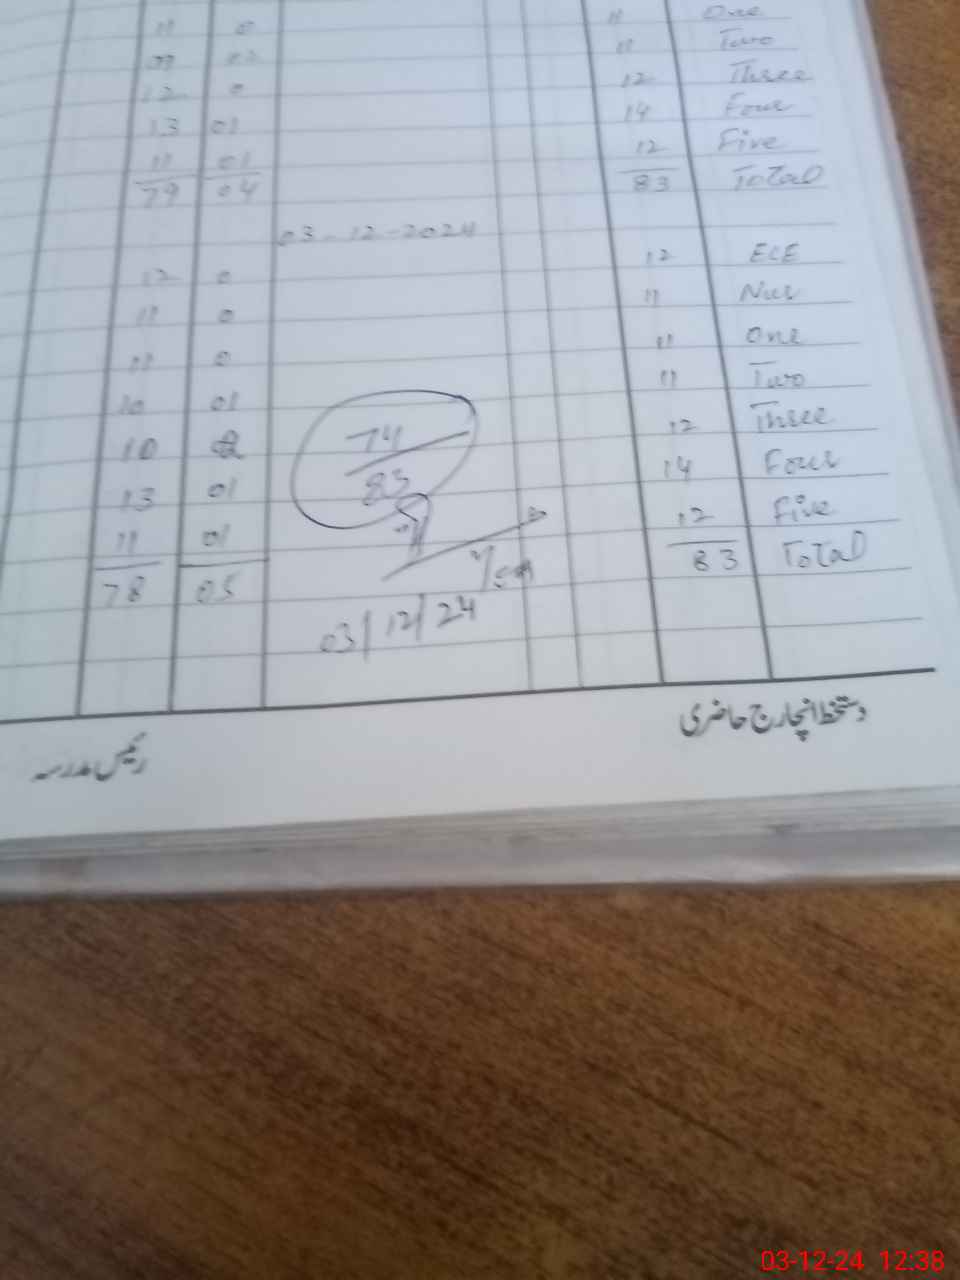 11 0 11 One
02 11 Two
12 0 12 Three
13 01 14 Four
11 01 12 Five
79 04 83 Total
03-12-2024
12 0 12 ECE
11 0 11 Nur
11 0 11 One
10 01 11 Two
10 12 Three
13 01 14 Four
11 01 12 Five
78 05 83 Total
74
83
03/12/24
دستخط انچارج حاضری
رئیس مدرسہ
03-12-24 12:38